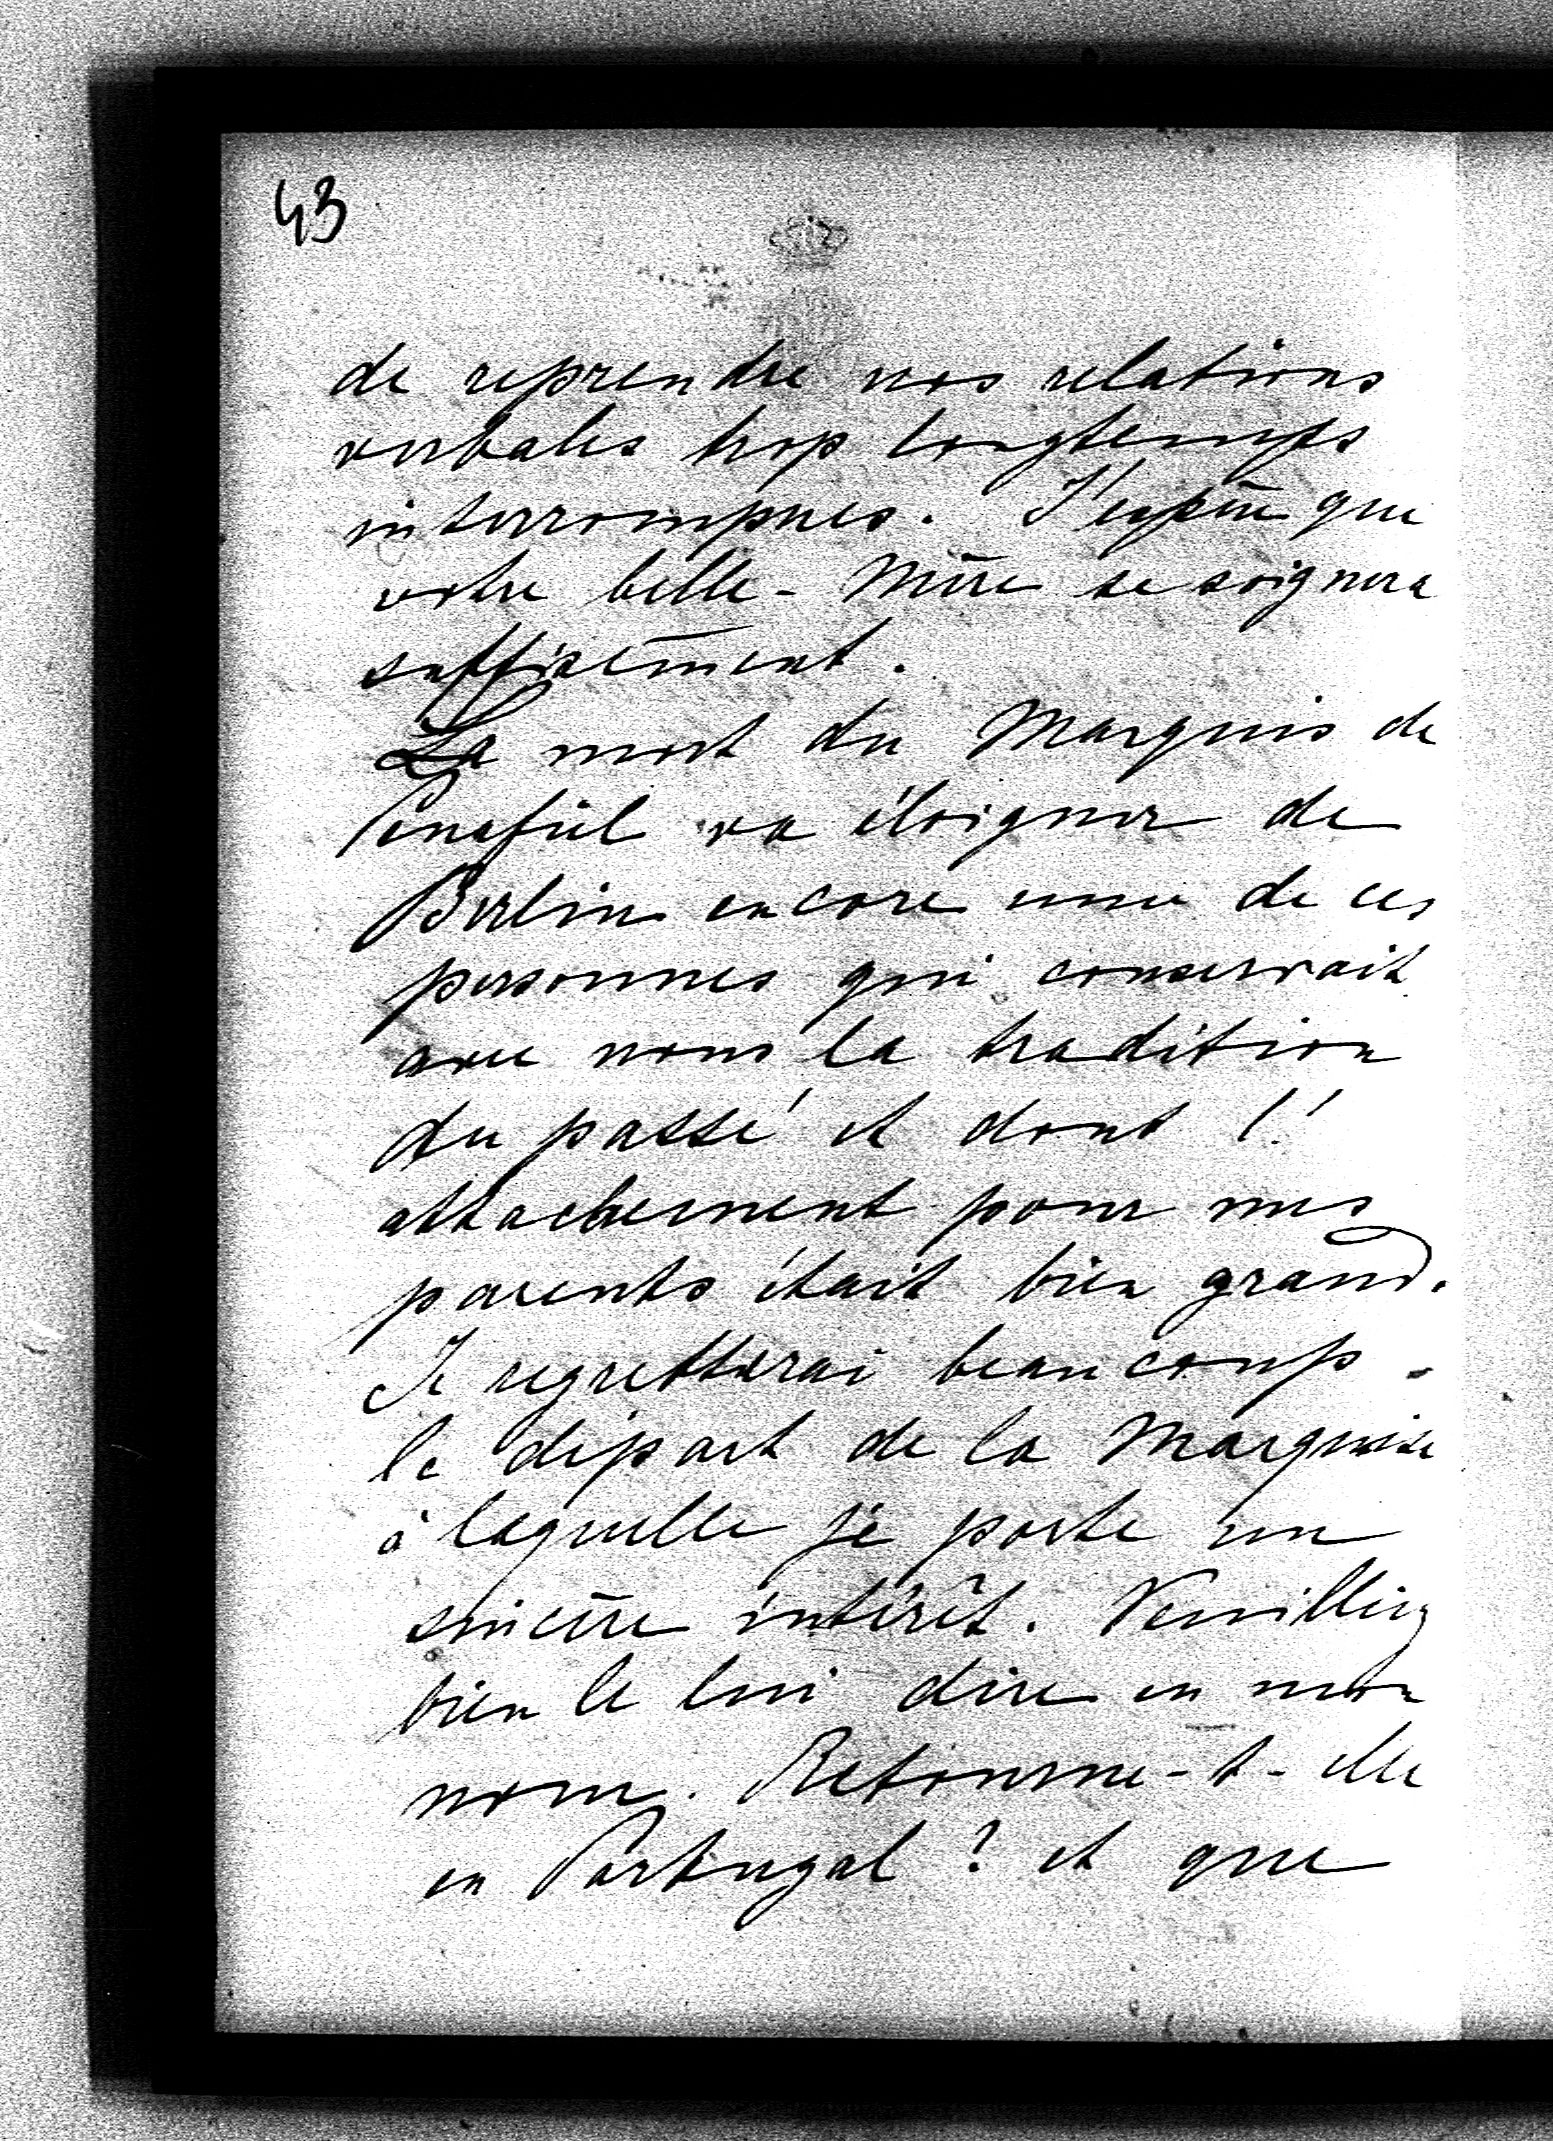 43
de reprendre nos relations
verbales trop longtemps
interrompues. J'espère que
votre belle-Mère se soignera
suffisement.
La mort du Marquis de
Penafiel va éloigner de
Berlin encore une de ces
personnes qui conservait
avec nous la tradition
du passé et dont l'
attachement pour mes
parents était bien grand.
Je regretterai beaucoup
le départ de la Marquise
à laquelle je porte un
sincère intérêt. Veuillez
bien le lui dire en mon
nom. Retourne-t-elle
en Portugal? et que